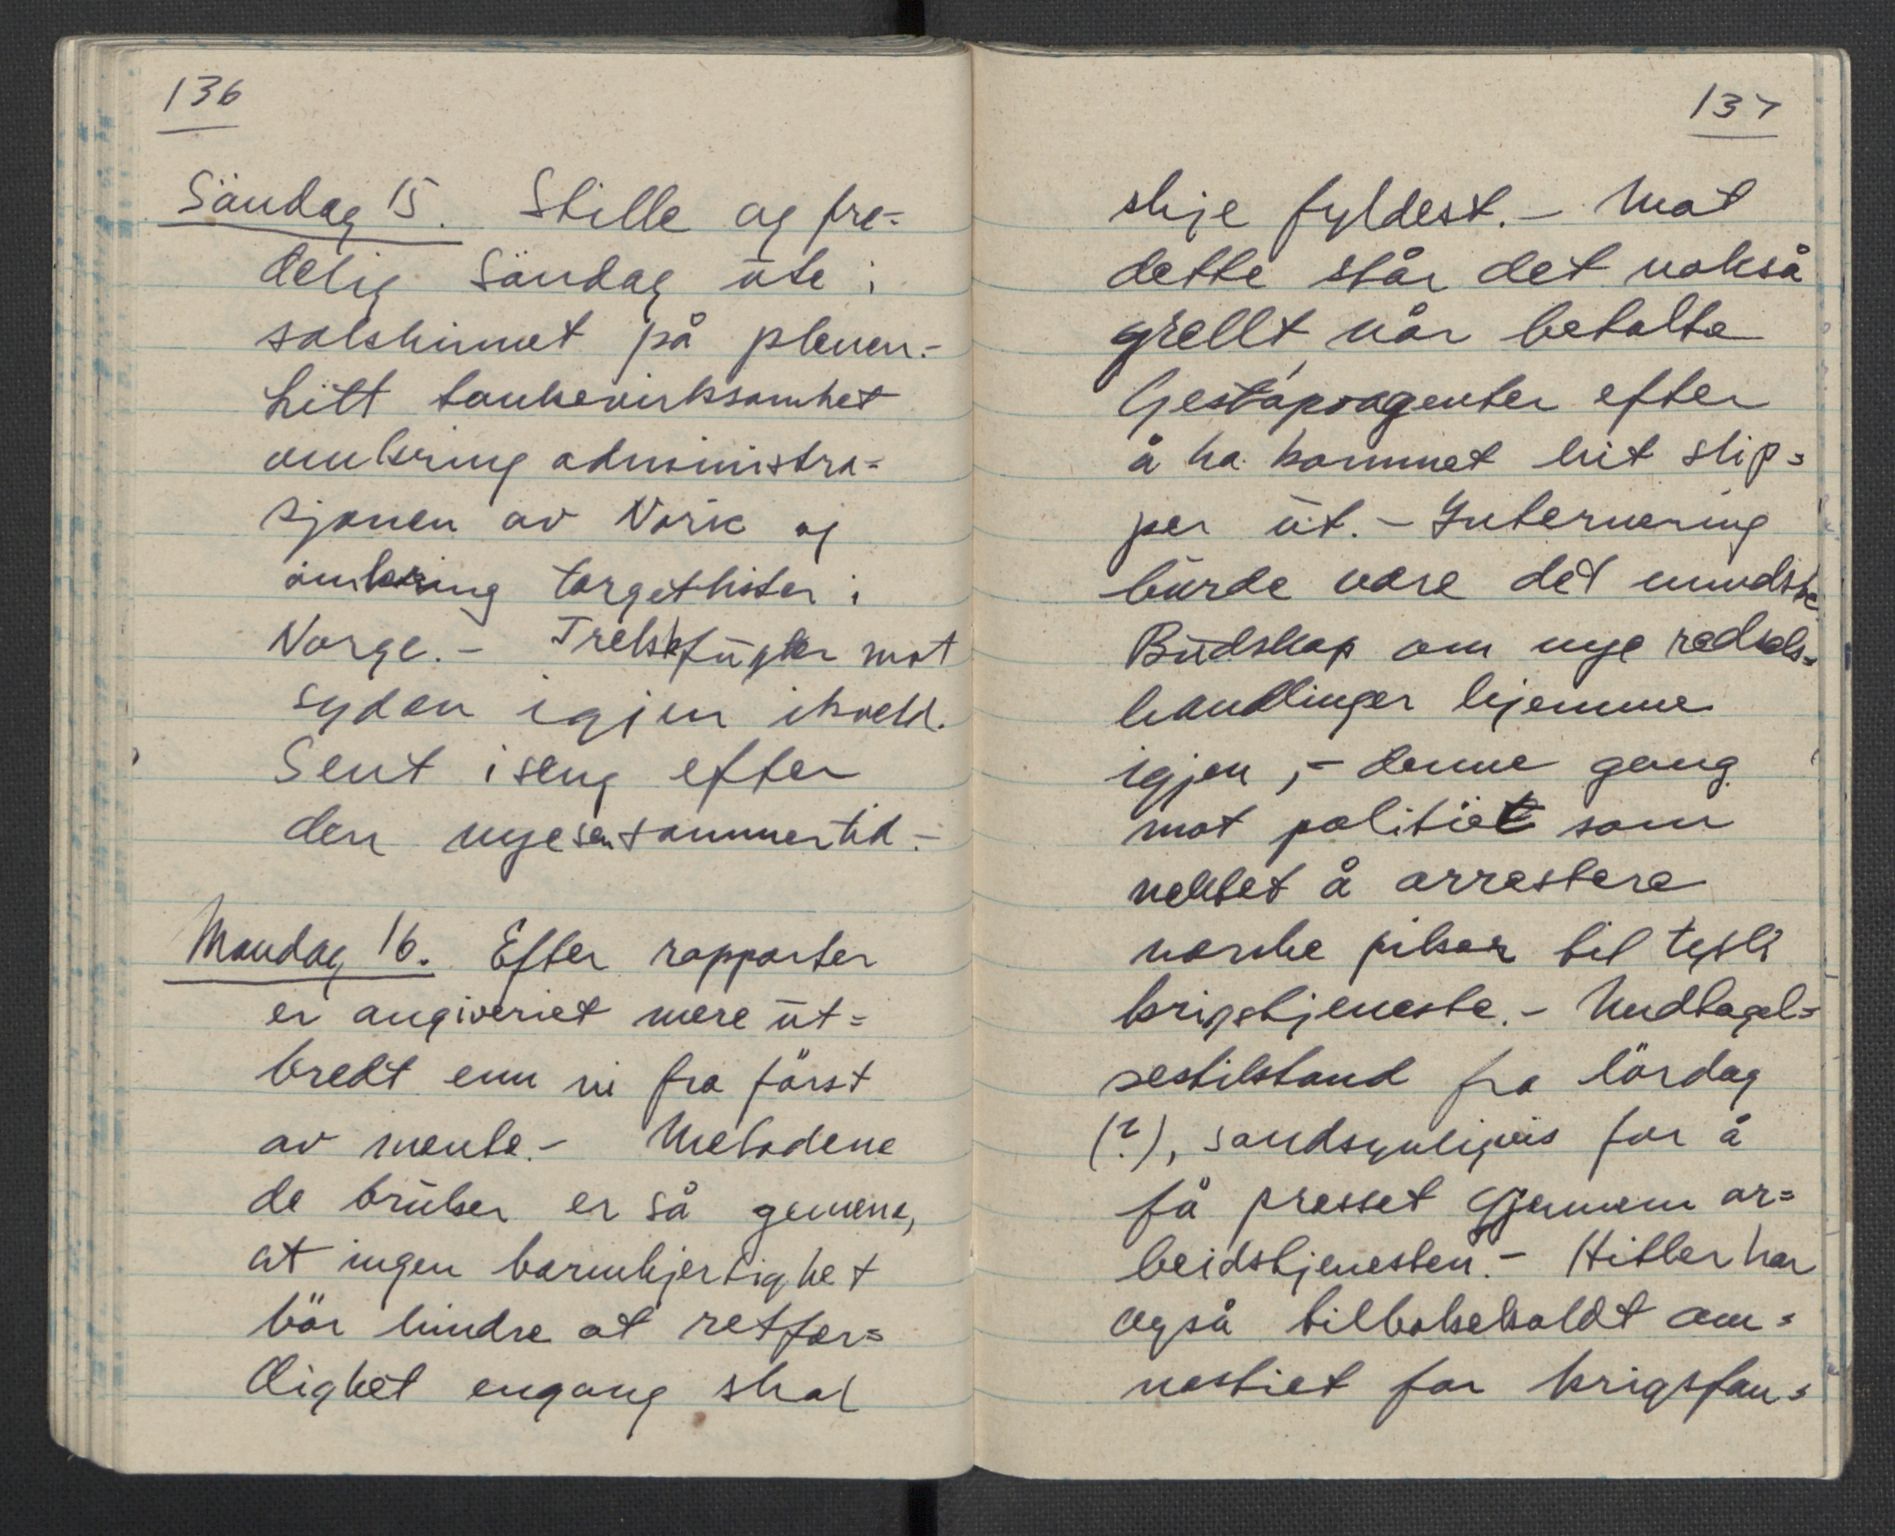 136
Söndag 15. Stille og fre=
delig Söndag ute i
solskinnet på plenen.-
Litt tankevirksomhet
omkring administra=
sjonen av Noric og
omkring targetlister i
Norge. - Trekkfugler mot
syden igjen ikveld.
Sent iseng efter
den nye sen sommertid.-
Mandag 16. Efter rapporter
er angiveriet mere ut=
bredt enn vi fra först
av mente. - Metodene
de bruker er så gemene,
at ingen barmhjertighet
bör hindre at retfær=
dighet engang skal
137
skje fyldest. - Mot
dette står det nokså
grellt når betalte
Gestapoagenter efter
å ha kommet hit slip=
per ut. - Internering
burde være det mindste
Budskap om nye redsels=
handlinger hjemme
igjen, - denne gang
mot politiet som
nektet å arrestere
norske piker til tysk
krigstjeneste. - Undtagel=
sestilstand fra lördag
(?), sandsynligvis for å
få presset gjennem ar=
beidstjenesten. - Hitler har
også tilbakekaldt am=
nestiet for krigsfan=